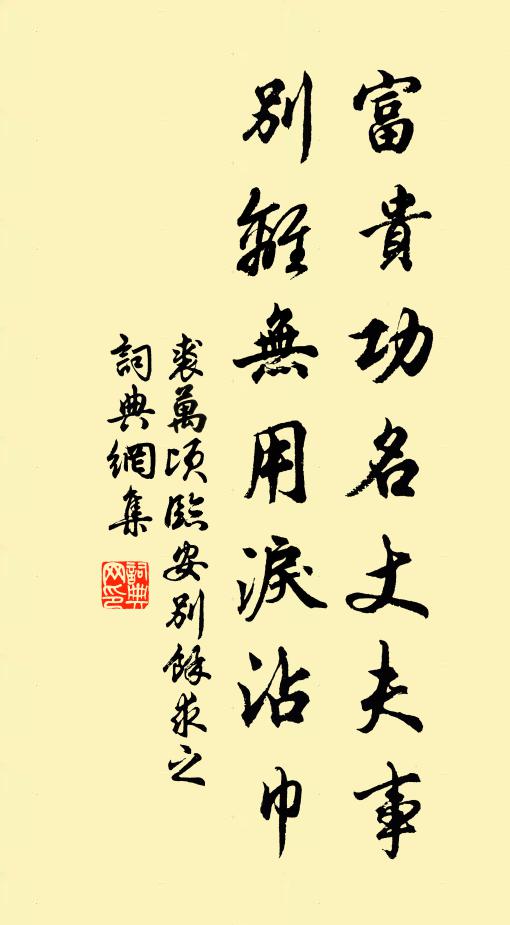 富貴功名丈夫事
別離無用淚沾巾
裘萬頃臨安別餘求之
詞典網集
詞典網印